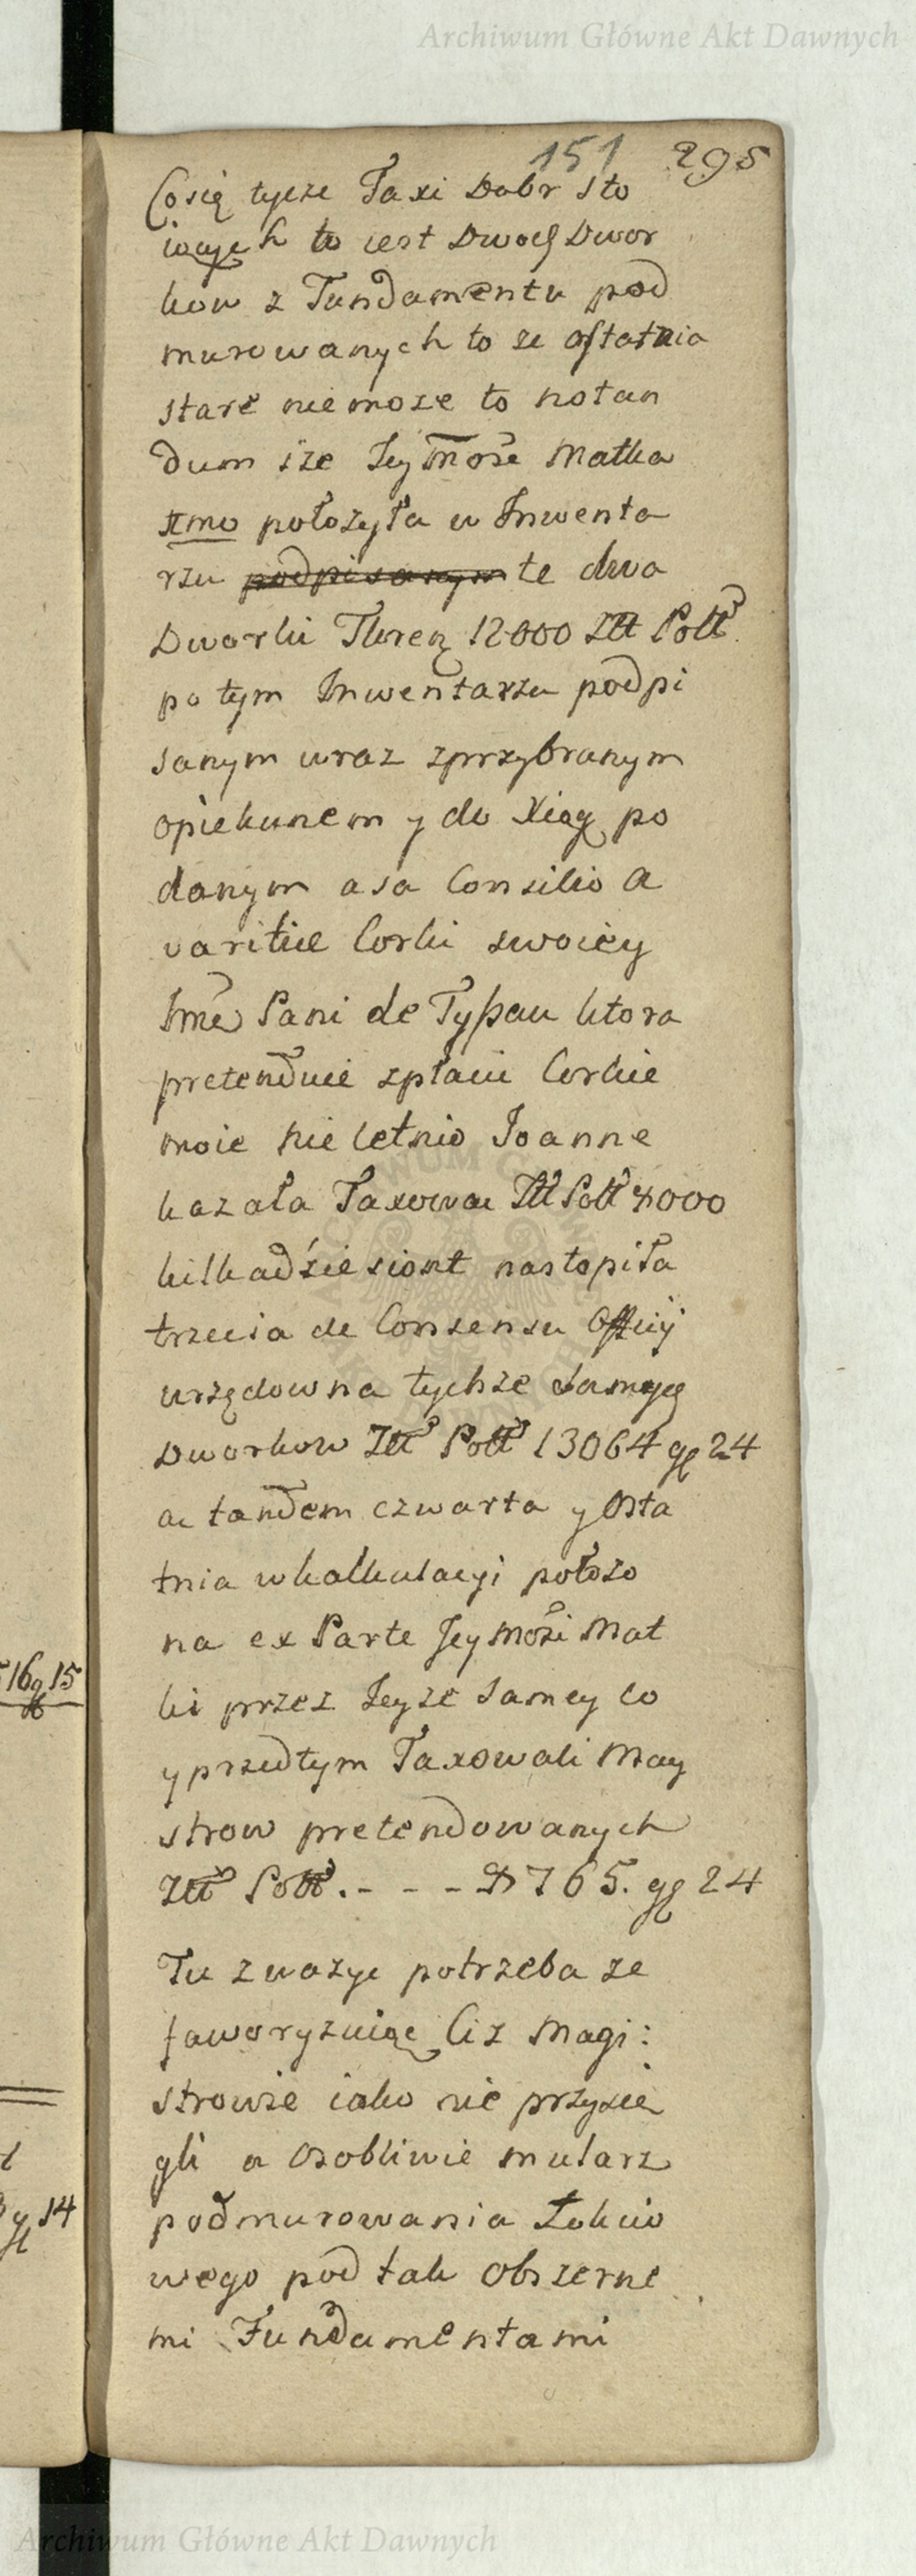 Archiwum Główne Akt Dawnych
151 295
Co się tycze Taxi Dobr Sto
iących to iest Dwoch Dwor
kow z Fundamentu pod
murowanych to ze ostatnia
stare nie moze to notan
dum ize Jeymość Matka
1mo położyła w Inwenta
rzu podpisanym te dwa
Dworki 12000 Złł Poll
po tym Inwentarzu podpi
sanym wraz zprzybranym
opiekunem y do Xiąg po
danym a sa Consilio a
varitiie Corki swoiey
Jme Pani de Tyszau ktora
pretenduie zpłacic Corkie
moie nie letnio Joanne
kazała Taxowac Złł Poll 4000
kilkadziesiont nastopiła
trzecia de Consensu Officij
urzędowna tychze samych
Dworkow Złł Poll 13064 gg 24
ac tandem czwarta y Osta
tnia wkalkulacyi położo
na ex Parte Jeymości Mat
ki przez Jeyze Samey co
y przedtym Taxowali May
strow pretendowanych
Złł Poll . - - - 765. gg 24
Tu zwazyc potrzeba ze
faworyzuiąc Ciz Magi:
strowie iako nie przysie
gli a osobliwie mularz
podmurowania Łokcio
wego pod tak obszerne
mi Fundamentami
16 g 15
g 14
Archiwum Główne Akt Dawnych